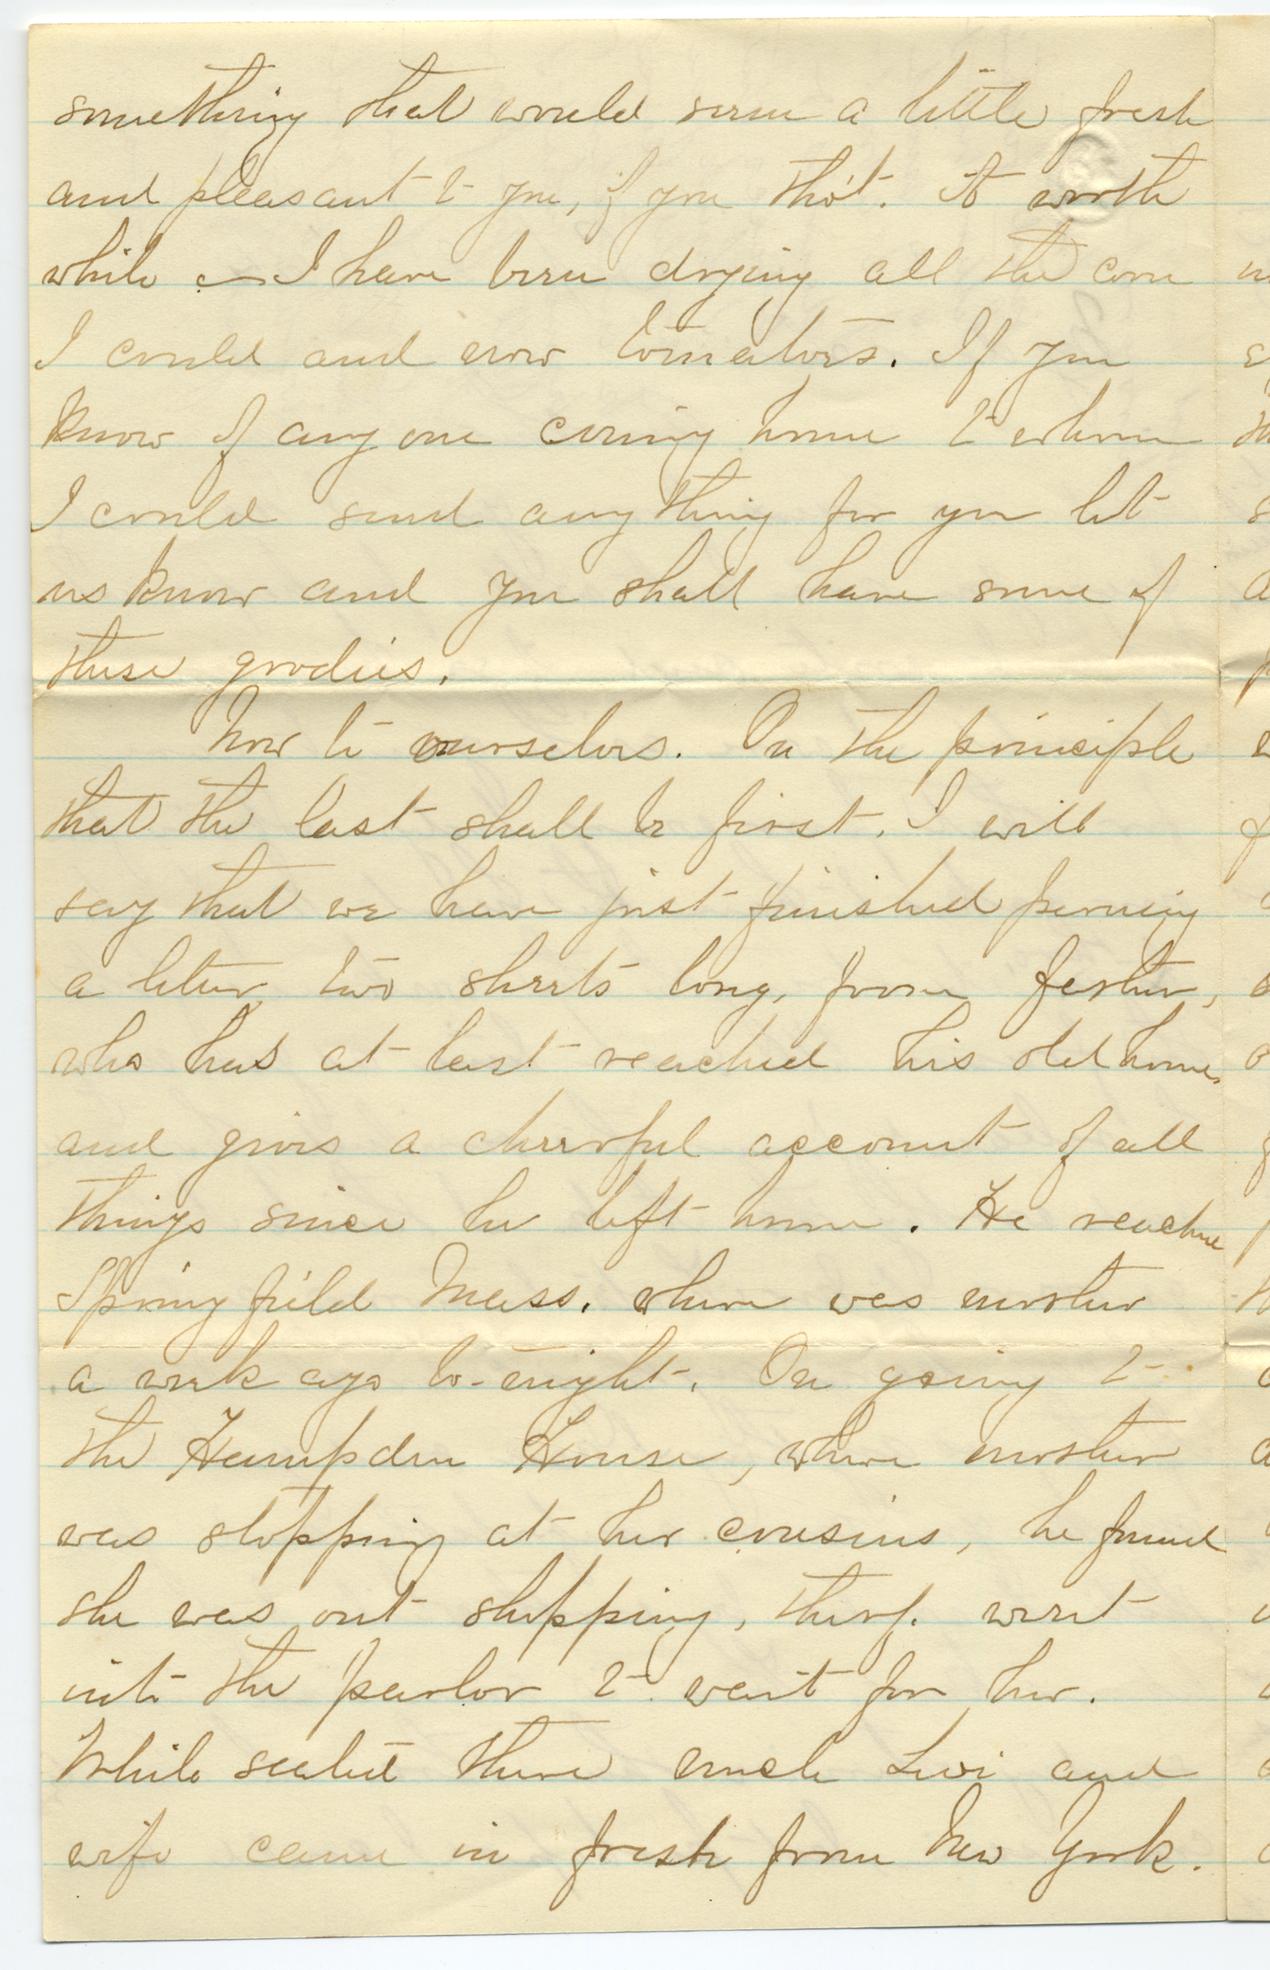 something that would seem a little fresh
and pleasant to you, if you tho't. it worth
while — I have been drying all the corn
I could and now tomatoes. If you
know of any one coming home to whom
I could send anything for you let
us know and you shall have some of
these goodies.
Now to ourselves. On the principle
that the last shall be first. I will
say that we have just finished perusing
a letter, two sheets long, from
who has at last reached his old home,
and gives a cheerful account of all
things since he left home. He reached
Springfield Mass. where was mother
a week ago to-night. On going to
the Hampden House, where mother
was stopping at her cousins, he found
she was out shopping, went
into the parlor to wait for her.
While seated there uncle Levi and
wife came in fresh from New York.